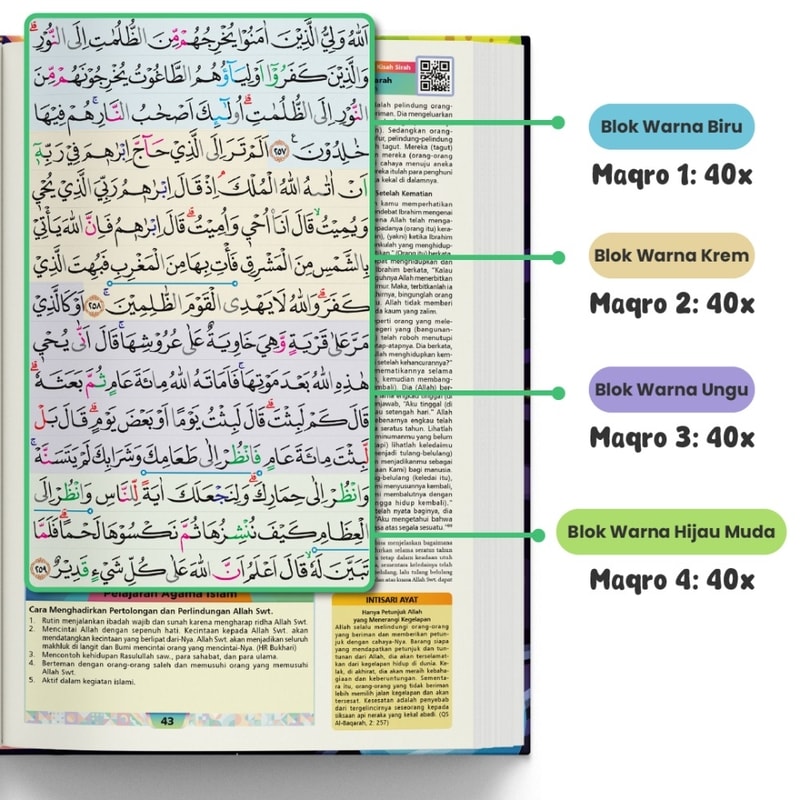 اَللّٰهُ وَلِيُّ الَّذِيْنَ اٰمَنُوْا يُخْرِجُهُمْ مِّنَ الظُّلُمٰتِ اِلَى النُّوْرِۗ
وَالَّذِيْنَ كَفَرُوْٓا اَوْلِيَاۤؤُهُمُ الطَّاغُوْتُ يُخْرِجُوْنَهُمْ مِّنَ
النُّوْرِ اِلَى الظُّلُمٰتِۗ اُولٰۤىِٕكَ اَصْحٰبُ النَّارِۚ هُمْ فِيْهَا
خٰلِدُوْنَ ࣖ ٢٥٧ اَلَمْ تَرَ اِلَى الَّذِيْ حَاۤجَّ اِبْرٰهٖمَ فِيْ رَبِّهٖٓ
اَنْ اٰتٰىهُ اللّٰهُ الْمُلْكَۘ اِذْ قَالَ اِبْرٰهٖمُ رَبِّيَ الَّذِيْ يُحْيٖ
وَيُمِيْتُۙ قَالَ اَنَا۠ اُحْيٖ وَاُمِيْتُۗ قَالَ اِبْرٰهٖمُ فَاِنَّ اللّٰهَ يَأْتِيْ
بِالشَّمْسِ مِنَ الْمَشْرِقِ فَأْتِ بِهَا مِنَ الْمَغْرِبِ فَبُهِتَ الَّذِيْ
كَفَرَۗ وَاللّٰهُ لَا يَهْدِى الْقَوْمَ الظّٰلِمِيْنَۚ ٢٥٨ اَوْ كَالَّذِيْ
مَرَّ عَلٰى قَرْيَةٍ وَّهِيَ خَاوِيَةٌ عَلٰى عُرُوْشِهَاۚ قَالَ اَنّٰى يُحْيٖ
هٰذِهِ اللّٰهُ بَعْدَ مَوْتِهَاۚ فَاَمَاتَهُ اللّٰهُ مِائَةَ عَامٍ ثُمَّ بَعَثَهٗۗ
قَالَ كَمْ لَبِثْتَۗ قَالَ لَبِثْتُ يَوْمًا اَوْ بَعْضَ يَوْمٍۗ قَالَ بَلْ
لَّبِثْتَ مِائَةَ عَامٍ فَانْظُرْ اِلٰى طَعَامِكَ وَشَرَابِكَ لَمْ يَتَسَنَّهْۚ
وَانْظُرْ اِلٰى حِمَارِكَۗ وَلِنَجْعَلَكَ اٰيَةً لِّلنَّاسِ وَانْظُرْ اِلَى
الْعِظَامِ كَيْفَ نُنْشِزُهَا ثُمَّ نَكْسُوْهَا لَحْمًاۗ فَلَمَّا
تَبَيَّنَ لَهٗۙ قَالَ اَعْلَمُ اَنَّ اللّٰهَ عَلٰى كُلِّ شَيْءٍ قَدِيْرٌ ٢٥٩
Kisah Sirah
Setelah Kematian
Pelajaran Agama Islam
Cara Menghadirkan Pertolongan dan Perlindungan Allah Swt.
1. Rutin menjalankan ibadah wajib dan sunah karena mengharap ridha Allah Swt.
2. Mencintai Allah dengan sepenuh hati. Kecintaan kepada Allah Swt. akan
mendatangkan kecintaan yang berlipat dari-Nya. Allah Swt. akan menjadikan seluruh
makhluk di langit dan Bumi mencintai orang yang mencintai-Nya. (HR Bukhari)
3. Mencontoh kehidupan Rasulullah saw., para sahabat, dan para ulama.
4. Berteman dengan orang-orang saleh dan memusuhi orang yang memusuhi
Allah Swt.
5. Aktif dalam kegiatan islami.
43
INTISARI AYAT
Hanya Petunjuk Allah
yang Menerangi Kegelapan
Allah selalu melindungi orang-orang
yang beriman dan memberikan petun-
juk dengan cahaya-Nya. Barang siapa
yang mendapatkan petunjuk dan tun-
tunan dari Allah, dia akan terselamat-
kan dari kegelapan hidup di dunia. Ke-
lak, di akhirat, dia akan meraih kebaha-
giaan dan keberuntungan. Sementa-
ra itu, orang-orang yang tidak beriman
lebih memilih jalan kegelapan dan akan
tersesat. Kesesatan adalah penyebab
dari tergelincirnya seseorang kepada
siksaan api neraka yang kekal abadi. (QS
Al-Baqarah, 2: 257)
Blok Warna Biru
Maqro 1: 40x
Blok Warna Krem
Maqro 2: 40x
Blok Warna Ungu
Maqro 3: 40x
Blok Warna Hijau Muda
Maqro 4: 40x